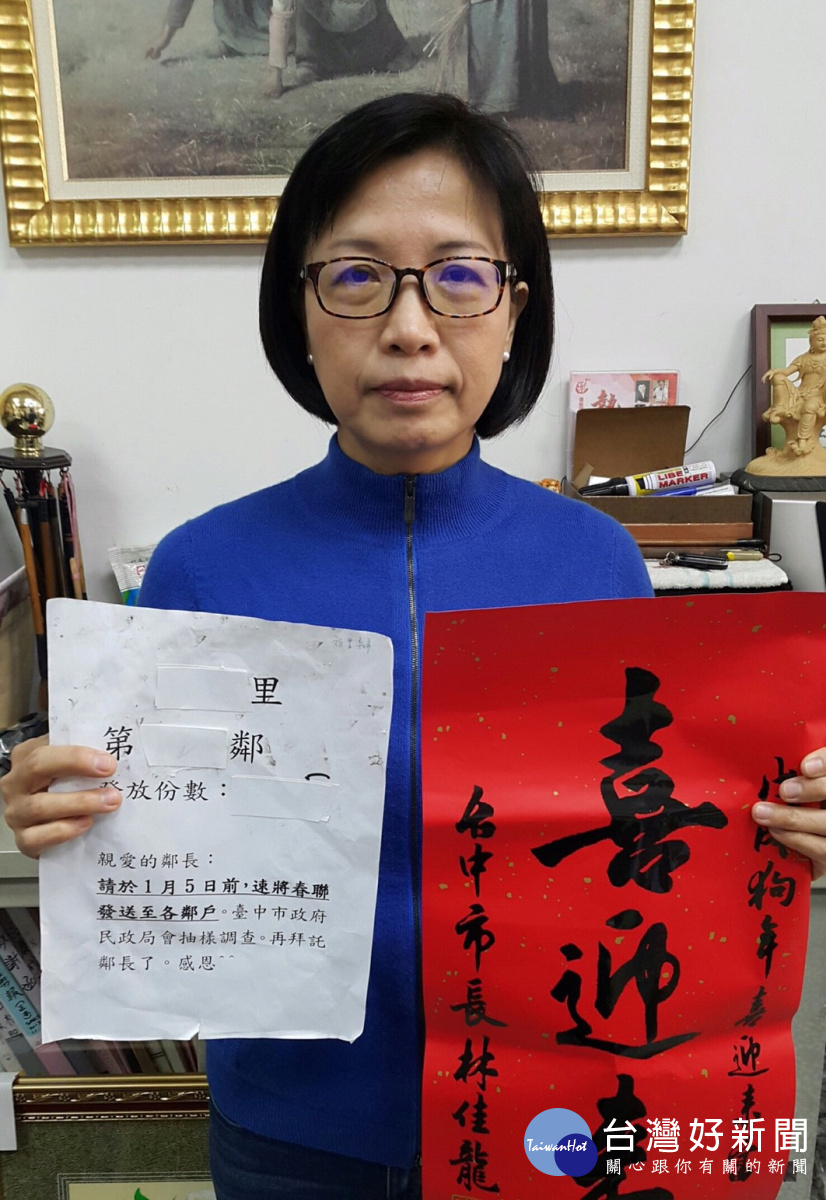 里
第 鄰
發放份數：
親愛的鄰長：
請於1月5日前，速將春聯
發送至各鄰戶。臺中市政府
民政局會抽樣調查。再拜託
鄰長了。感恩^^
喜迎來
狗年喜迎來
台中市長林佳龍
LIBE
MARKER
TaiwanHot
台灣好新聞
關心跟你有關的新聞